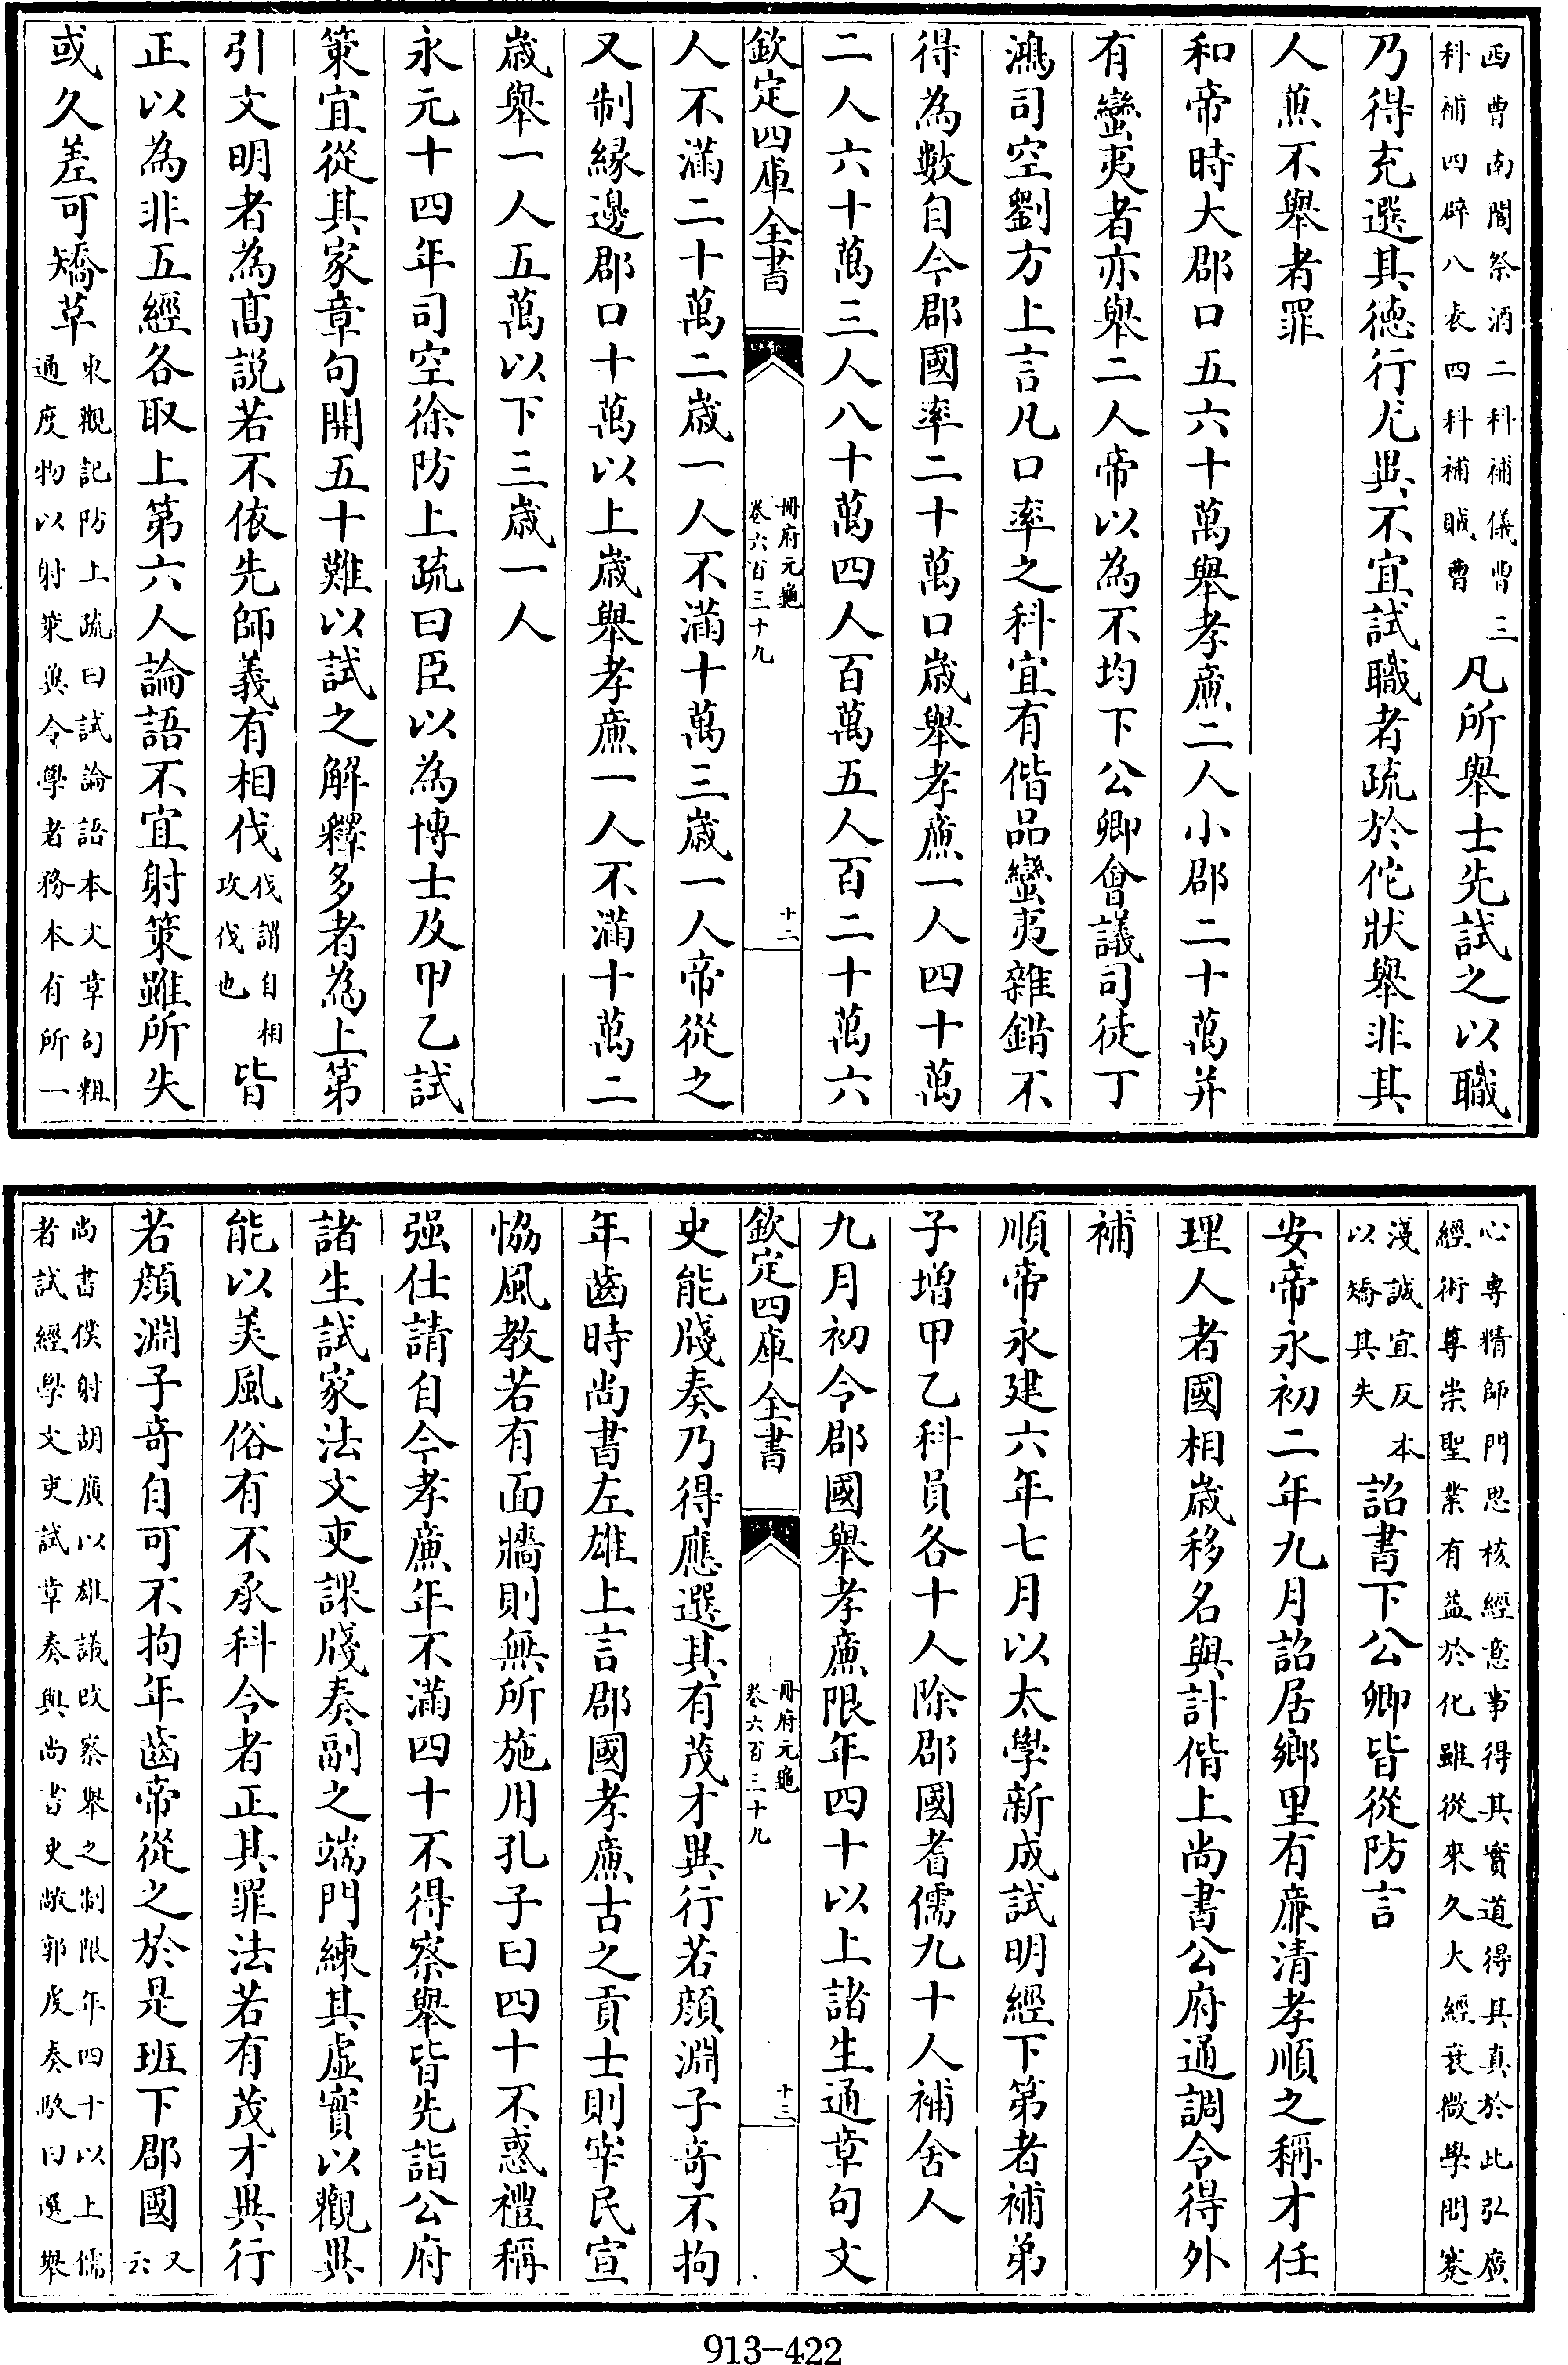 西曹南閤祭酒二科補儀曹三
科補四辟八表四科補賊曹
凡所舉士先試之以職
乃得充選其徳行尤異不宜試職者疏於佗狀舉非其
人蕉不舉者罪
和帝時大郡口五六十萬舉孝亷二人小郡二十萬并
有蠻夷者亦舉二人帝以為不均下公卿㑹議司徒丁
鴻司空劉方上言凡口率之科宜有偕品蠻夷雜錯不
得為數自今郡國率二十萬口嵗舉孝亷一人四十萬
二人六十萬三人八十萬四人百萬五人百二十萬六
欽定四庫全書
冊府元龜
卷六百三十九
十二
人不滿二十萬二嵗一人不滿十萬三嵗一人帝從之
又制縁邊郡口十萬以上嵗舉孝亷一人不滿十萬二
嵗舉一人五萬以下三嵗一人
永元十四年司空徐防上疏曰臣以為博士及甲乙試
策宜從其家章句開五十難以試之解釋多者為上第
引文明者為髙説若不依先師義有相伐
伐謂自相
攻伐也
皆
正以為非五經各取上第六人論語不宜射策雖所失
或久差可矯草
東觀記防上疏曰試論語本文章句粗
通度物以射策兾令學者務本有所一
心專精師門思核經意事得其實道得其真於此弘廣
經術尊崇聖業有益於化雖從來久大經衰微學問寖
淺誠宜反本
以矯其失
詔書下公卿皆從防言
安帝永初二年九月詔居鄉里有亷清孝順之稱才任
理人者國相嵗移名與計偕上尚書公府通調令得外
補
順帝永建六年七月以太學新成試明經下第者補弟
子增甲乙科員各十人除郡國耆儒九十人補舍人
九月初令郡國舉孝亷限年四十以上諸生通章句文
欽定四庫全書
冊府元龜
卷六百三十九
十三
史能牋奏乃得應選其有茂才異行若顔淵子竒不拘
年齒時尚書左雄上言郡國孝亷古之貢士則宰民宣
恊風教若有面牆則無所施用孔子曰四十不惑禮稱
强仕請自今孝亷年不滿四十不得察舉皆先詣公府
諸生試家法文吏課牋奏副之端門練其虚實以觀異
能以美風俗有不承科令者正其罪法若有茂才異行
若顔淵子竒自可不拘年齒帝從之於是班下郡國
又
云
尚書僕射胡廣以雄議改察舉之制限年四十以上儒
者試經學文吏試章奏與尚書史敞郭虔奏駮曰選舉
913-422